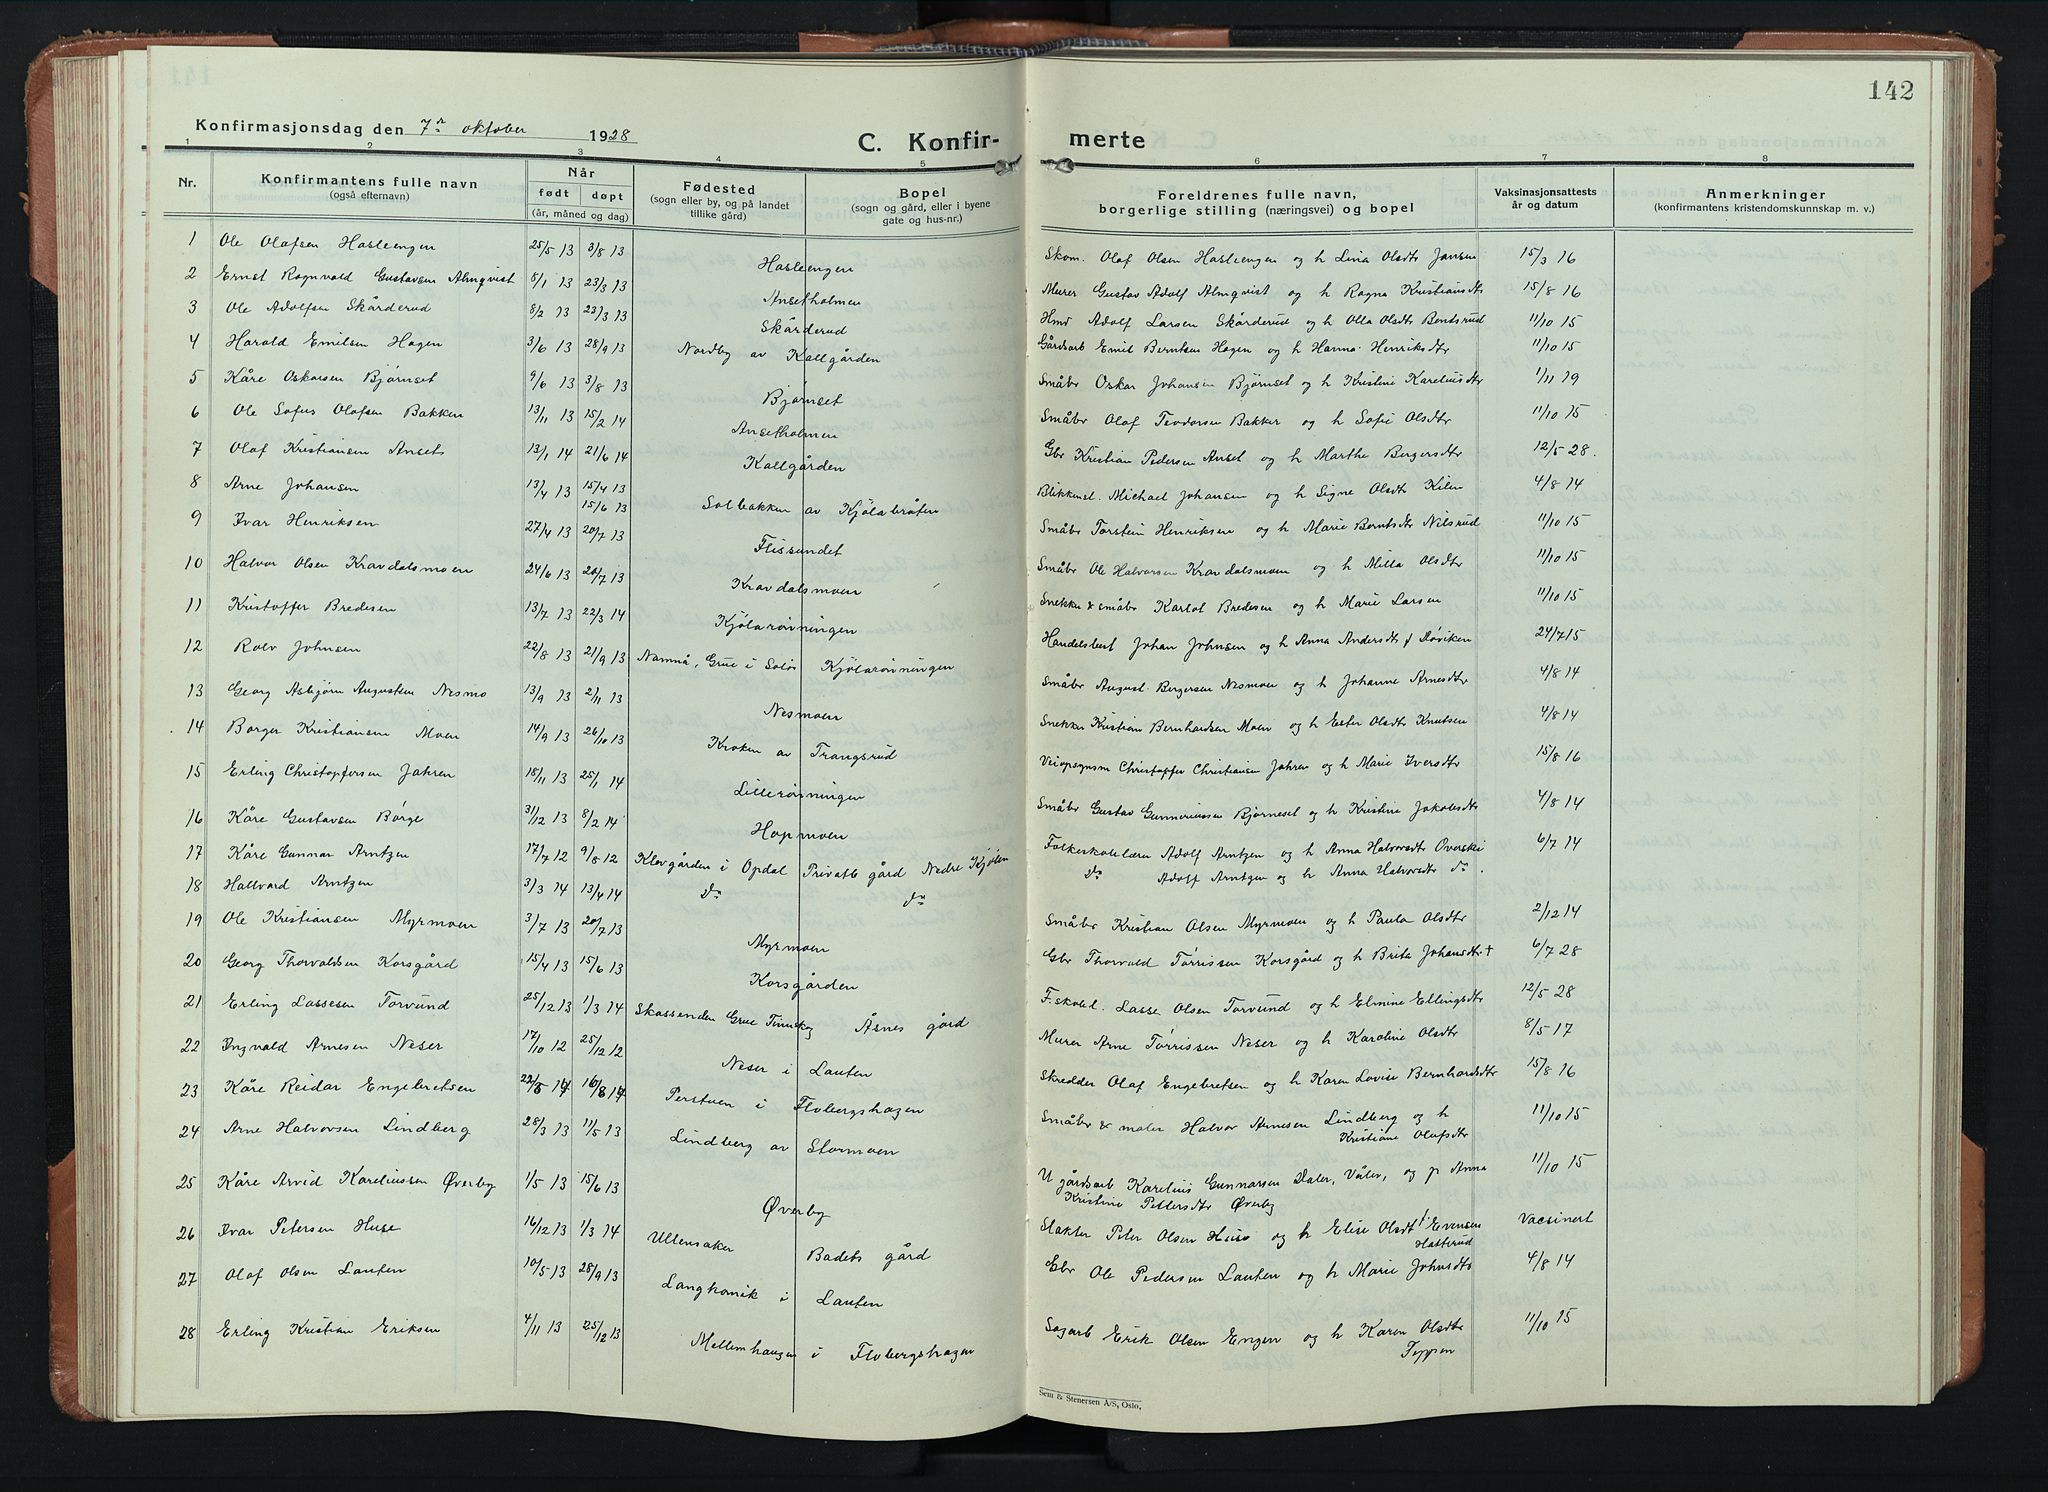 142
Konfirmasjonsdag den 7de oktober 1928
C. Konfir-merte
1 2 3 4 5 6 7 8
Nr.
Konfirmantens fulle navn
(også efternavn)
Når
født døpt
(år, måned og dag)
Fødested
(sogn eller by, og på landet
tillike gård)
Bopel
(sogn og gård, eller i byene
gate og hus-nr.)
Foreldrenes fulle navn,
borgerlige stilling (næringsvei) og bopel
Vaksinasjonsattests
år og datum
Anmerkninger
(konfirmantens kristendomskunnskap m. v.)
1 Ole Olafsen Hasleengen 25/5 13 3/8 13 Hasleengen Skom. Olaf Olsen Hasleengen og h Lina Olsdtr Jansen 15/3 16
2 Ernst Ragnvald Gustavsen Almqvist 8/1 13 23/3 13 Ansetholmen Murer Gustav Adolf Almqvist og h Ragna Kristiansdtr 15/8 16
3 Ole Adolfsen Skårderud 8/2 13 23/3 13 Skårderud Hmd Adolf Larsen Skårderud og h Olla Olsdtr Bentsrud 11/10 15
4 Harald Emilsen Hagen 3/6 13 28/9 13 Nordby av Kallgården Gårdsarb Emil Berntsen Hagen og h Hanna Henriksdtr 11/10 15
5 Kåre Oskarsen Bjørnset 9/6 13 3/8 13 Bjørnset Småbr Oskar Johansen Bjørnset og h Kristine Kareliusdtr 1/11 19
6 Ole Sofus Olafsen Bakken 13/11 13 15/2 14 Ansetholmen Småbr Olaf Teodorsen Bakker og h Sofie Olsdtr 11/10 15
7 Olaf Kristiansen Ansets 13/1 14 21/6 14 Kallgården Gbr Kristian Pedersen Anset og h Marthe Bergersdtr 12/5 28.
8 Arne Johansen 13/4 13 15/4 13 15/6 13 Solbakken av Kjølabråten Blikkensl. Michael Johansen og h Signe Olsdtr Kilen 4/8 14
9 Ivar Henriksen 27/4 13 20/7 13 Flissundet Småbr Torstein Henriksen og h Marie Berntsdtr Nilsrud 11/10 15
10 Halvor Olsen Kravdalsmoen 24/6 13 20/7 13 Kravdalsmoen Småbr Ole Halvorsen Kravdalsmoen og h Milla Olsdtr 11/10 15
11 Kristoffer Bredesen 13/7 13 22/3 14 Kjølarøvningen Snekker & småbr Karlot Bredesen og h Marie Larsen 11/10 15
12 Rolv Johnsen 22/8 13 21/9 13 Namnå, Grue i Solør Kjølarøvningen Handelsbest Johan Johnsen og h Anna Andersdtr f Støviken 24/7 15
13 Georg Asbjørn Augustsen Nesmo 13/9 13 2/11 13 Nesmoen Småbr August Bergersen Nesmoen og h Johanne Arnesdtr 4/8 14
14 Borger Kristiansen Moen 14/9 13 26/10 13 Kroken av Trangsrud Snekker Kristian Bernhardsen Moen og h Ester Olsdtr Knutsen 4/8 14
15 Erling Christophersen Jahren 18/11 13 25/1 14 Lillerøvningen Veiopsynsm Christopher Christiansen Jahren og h Marie Iversdtr 15/8 16
16 Kåre Gustavsen Børge 31/12 13 8/2 14 Hopmoen Småbr Gustav Gunneriussen Bjørneset og h Kristine Jakobsdtr 4/8 14
17 Kåre Gunnar Arntzen 17/7 12 9/8 12 Klevgården i Opdal Privatb gård Nedre Kjølen Folkeskolelærer Adolf Arntzen og h Anna Halvorsdtr Overskei 6/7 14
18 Hallvard Arntzen 3/3 14 13/4 14 do do do Adolf Arntzen og h Anna Halvorsdtr do.
19 Ole Kristiansen Myrmoen 3/7 13 20/7 13 Myrmoen Småbr Kristian Olsen Myrmoen og h Paula Olsdtr 2/12 14
20 Georg Thorvaldsen Korsgård 15/4 13 15/6 13 Korsgården Gbr Thorvald Tørrissen Korsgård og h Brita Johansdtr † 6/7 28
21 Erling Lassesen Torvund 25/12 13 1/3 14 Skassenden Grue Finnskog Åsnes gård F.skolel. Lasse Olsen Torvund og h Elmine Ellingsdtr 12/5 28
22 Ingvald Arnesen Neser 17/10 12 25/12 12 Neser i Lauten Murer Arne Tørrissen Neser og h Karoline Olsdtr 8/5 17
23 Kåre Reidar Engebretsen 22/5 14 16/8 14 Perstuen i Flobergshagen Skredder Olaf Engebretsen og h Karen Lovise Bernhardsdtr 15/8 16
24 Arne Halvorsen Lindberg 28/3 13 11/5 13 Lindberg av Stormoen Småbr & maler Halvor Arnesen Lindberg og h 11/10 15
Kristiane Olafsdtr
25 Kåre Arvid Kareliussen Øverby 1/5 13 15/6 13 Øverby U gårdsarb Karelius Gunnarsen Daler, Våler, og p Anna 11/10 15
Kristine Pettersdtr Øverby
26 Ivar Petersen Huse 16/12 13 1/3 14 Ullensaker Badets gård Slakter Peter Olsen Huse og h Elise Olsdtr f. Evensen Vacsinert
Hatterud
27 Olaf Olsen Lauten 10/5 13 28/9 13 Langkonik i Lauten Gbr Ole Pedersen Lauten og h Marie Johnsdtr 4/8 14
28 Erling Kristian Eriksen 4/11 13 25/12 13 Mellemhaugen i Flobergshagen Sagarb Erik Olsen Engen og h Karen Olsdtr 11/10 15
Teppen
Sem & Stenersen A/S, Oslo.